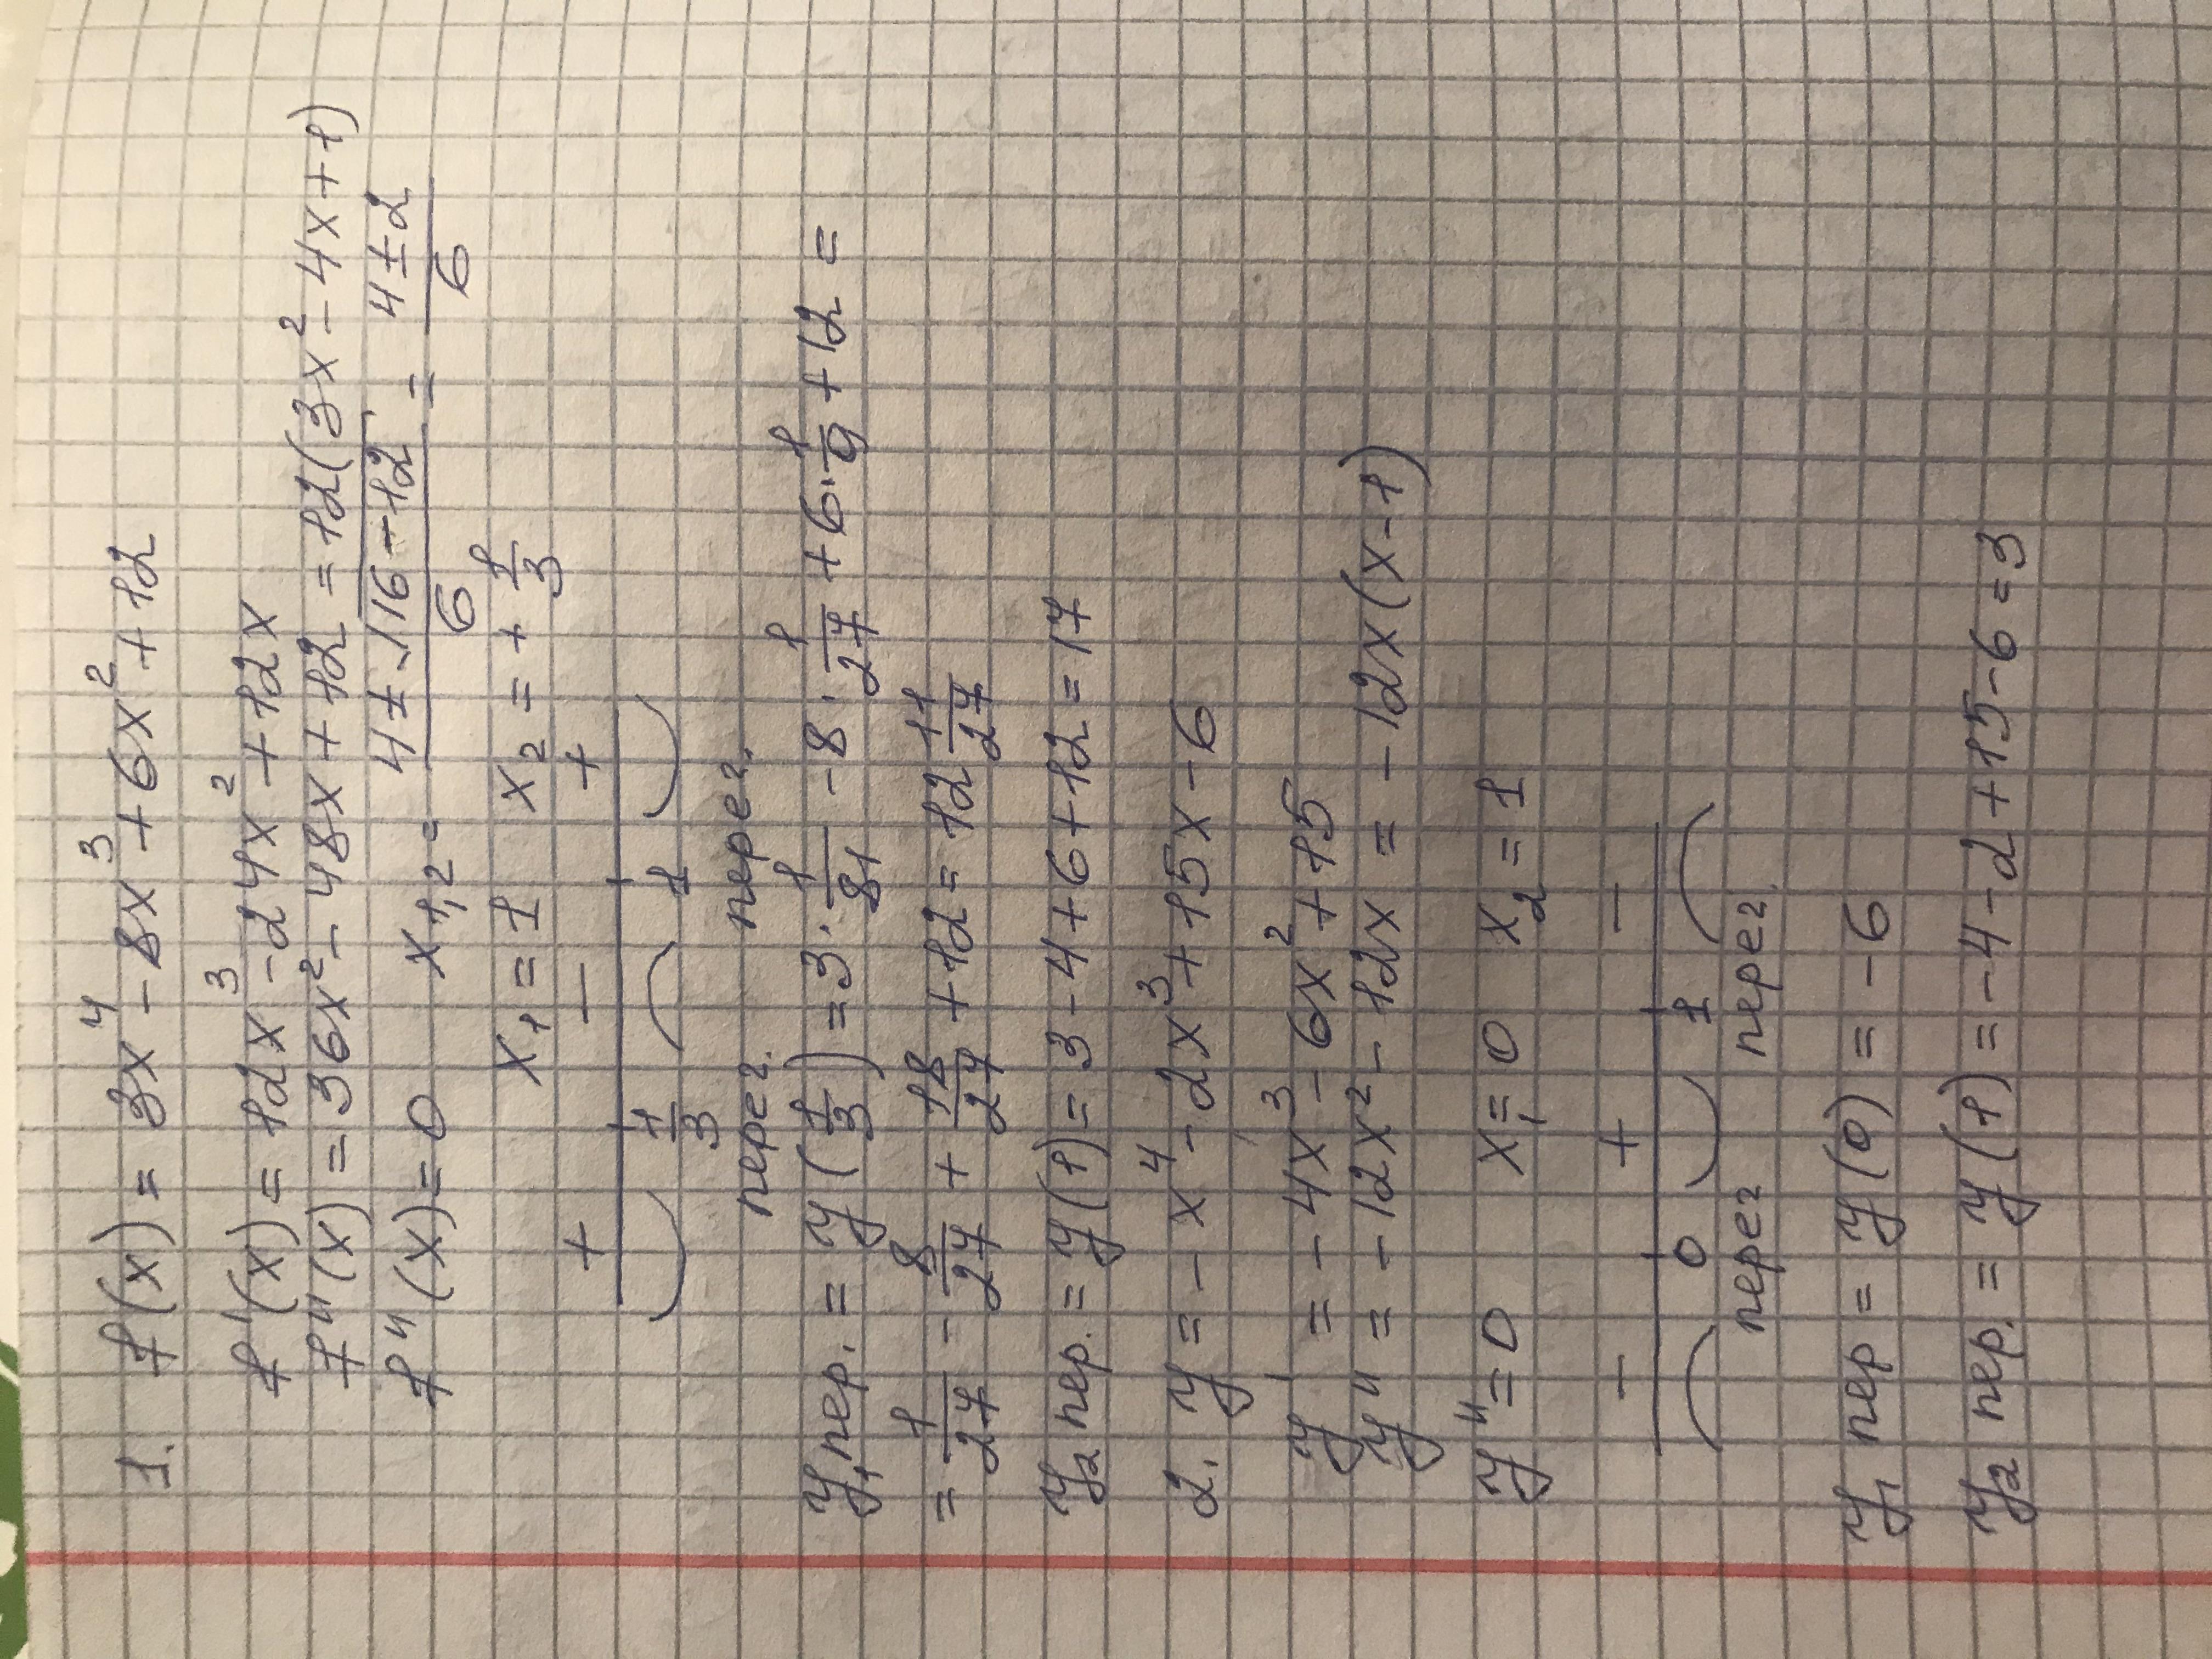 1. f(x) = 3x⁴ - 8x³ + 6x² + 12
f'(x) = 12x³ - 24x² + 12x
f"(x) = 36x² - 48x + 12 = 12(3x² - 4x + 1)
f"(x) = 0 x₁,₂ = (4 ± √(16 - 12))/6 = (4 ± 2)/6
x₁ = 1 x₂ = + 1/3
+ - +
1/3 1
перег. перег.
y₁ пер. = y(1/3) = 3 · 1/81 - 8 · 1/27 + 6 · 1/9 + 12 =
= 1/27 - 8/27 + 18/27 + 12 = 12 11/27
y₂ пер. = y(1) = 3 - 4 + 6 + 12 = 17
2. y = - x⁴ - 2x³ + 15x - 6
y' = - 4x³ - 6x² + 15
y" = - 12x² - 12x = - 12x(x - 1)
y" = 0 x₁ = 0 x₂ = 1
- + -
0 1
перег перег.
y₁ пер = y(0) = - 6
y₂ пер. = y(1) = - 4 - 2 + 15 - 6 = 3